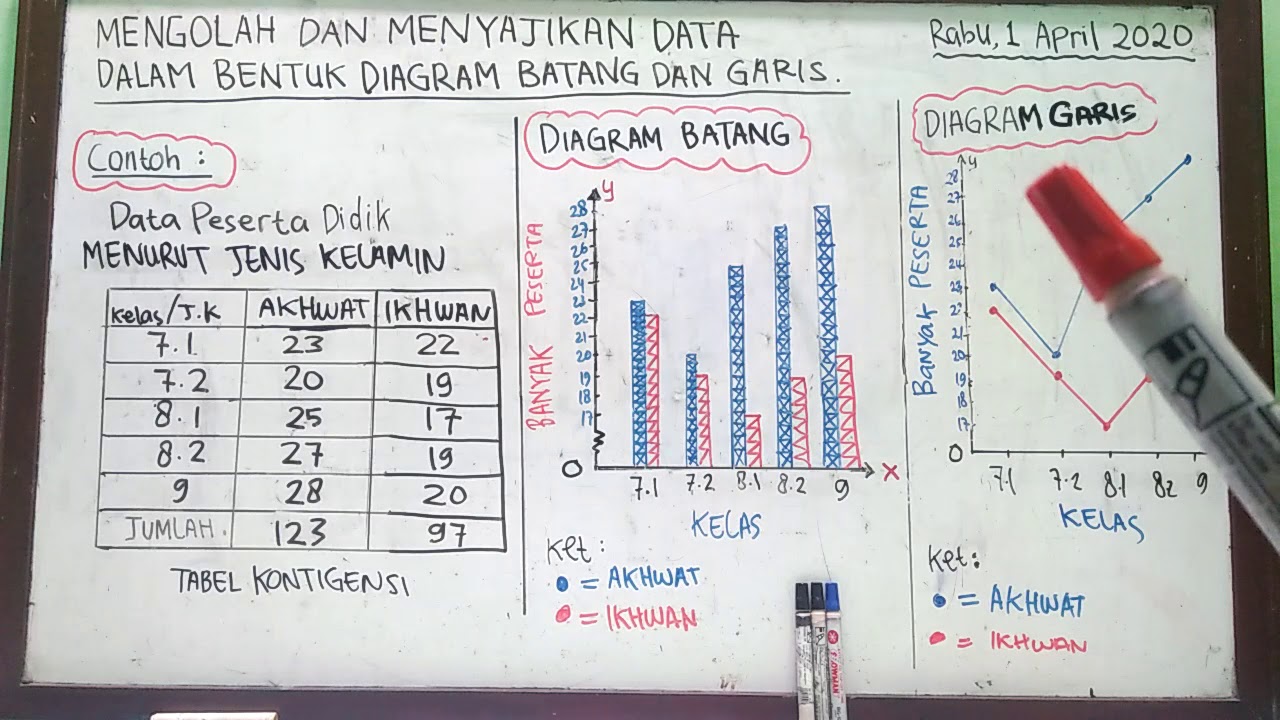 MENGOLAH DAN MENYAJIKAN DATA
DALAM BENTUK DIAGRAM BATANG DAN GARIS.
Rabu, 1 April 2020
Contoh :
Data Peserta Didik
MENURUT JENIS KELAMIN
Kelas/J.K AKHWAT IKHWAN
7.1 23 22
7.2 20 19
8.1 25 17
8.2 27 19
9 28 20
JUMLAH. 123 97
TABEL KONTIGENSI
DIAGRAM BATANG
y
BANYAK PESERTA
28
27
26
25
24
23
22
21
20
19
18
17
0
7.1 7.2 8.1 8.2 9
x
KELAS
Ket :
= AKHWAT
= IKHWAN
DIAGRAM GARIS
y
BANYAK PESERTA
28
27
26
25
24
23
21
20
19
18
17
0
7.1 7.2 8.1 8.2 9
KELAS
Ket :
= AKHWAT
= IKHWAN
SNOWMAN